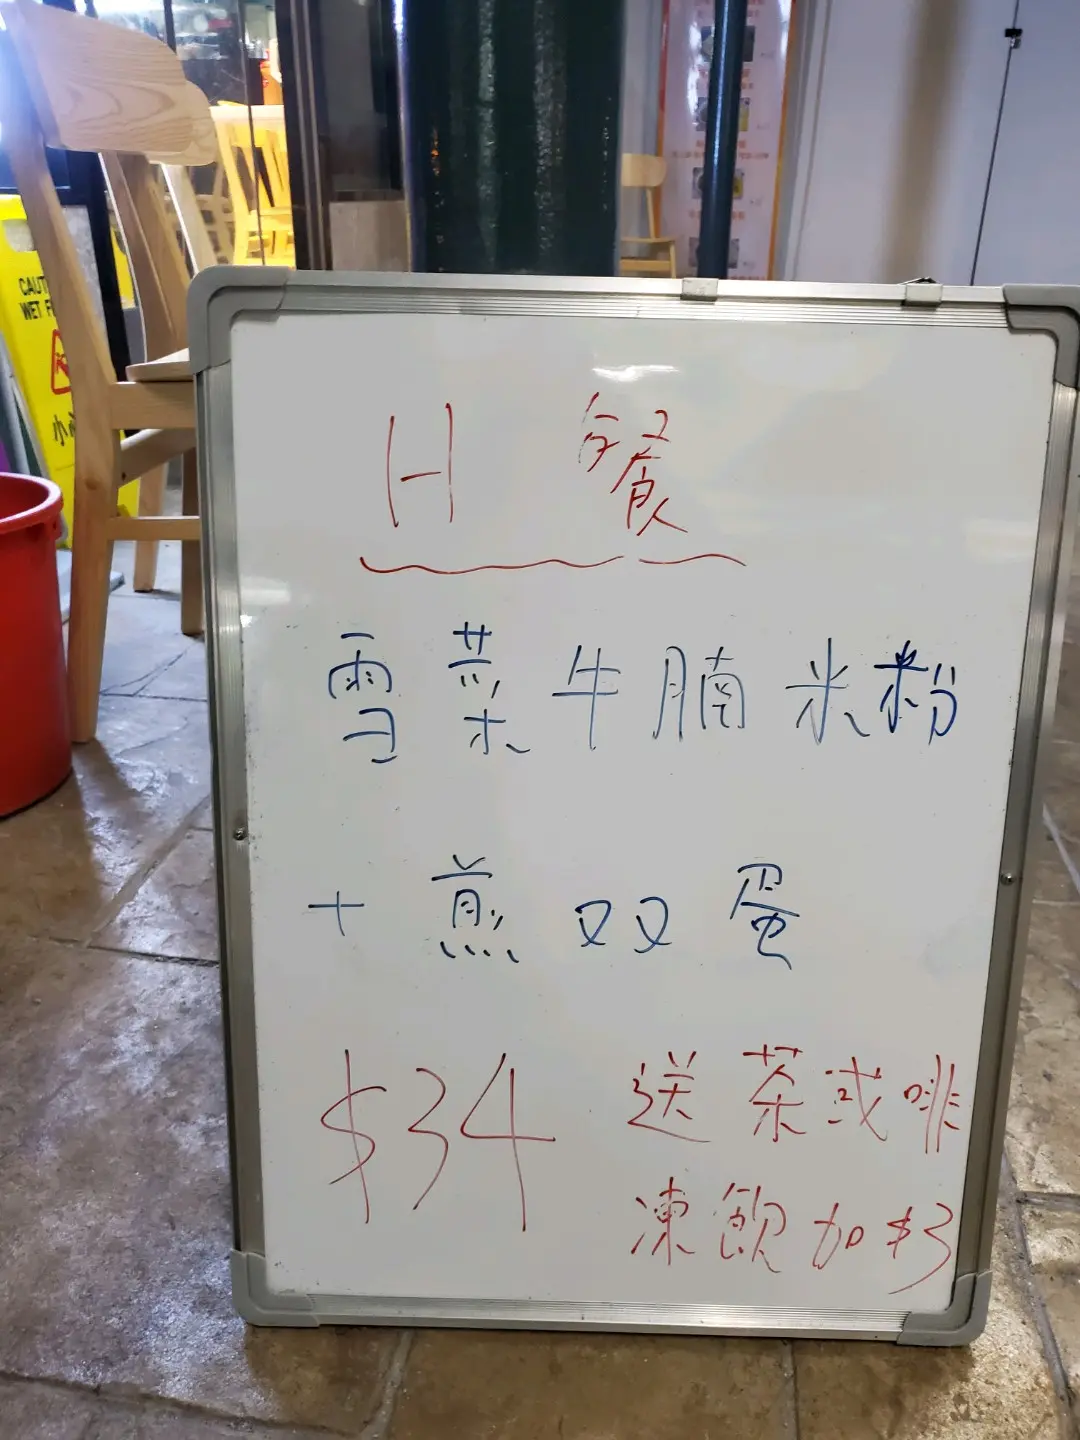 CAUT
WET F
小
H 餐
雪菜牛腩米粉
+煎双蛋
$34 送茶或啡
凍飲加$3